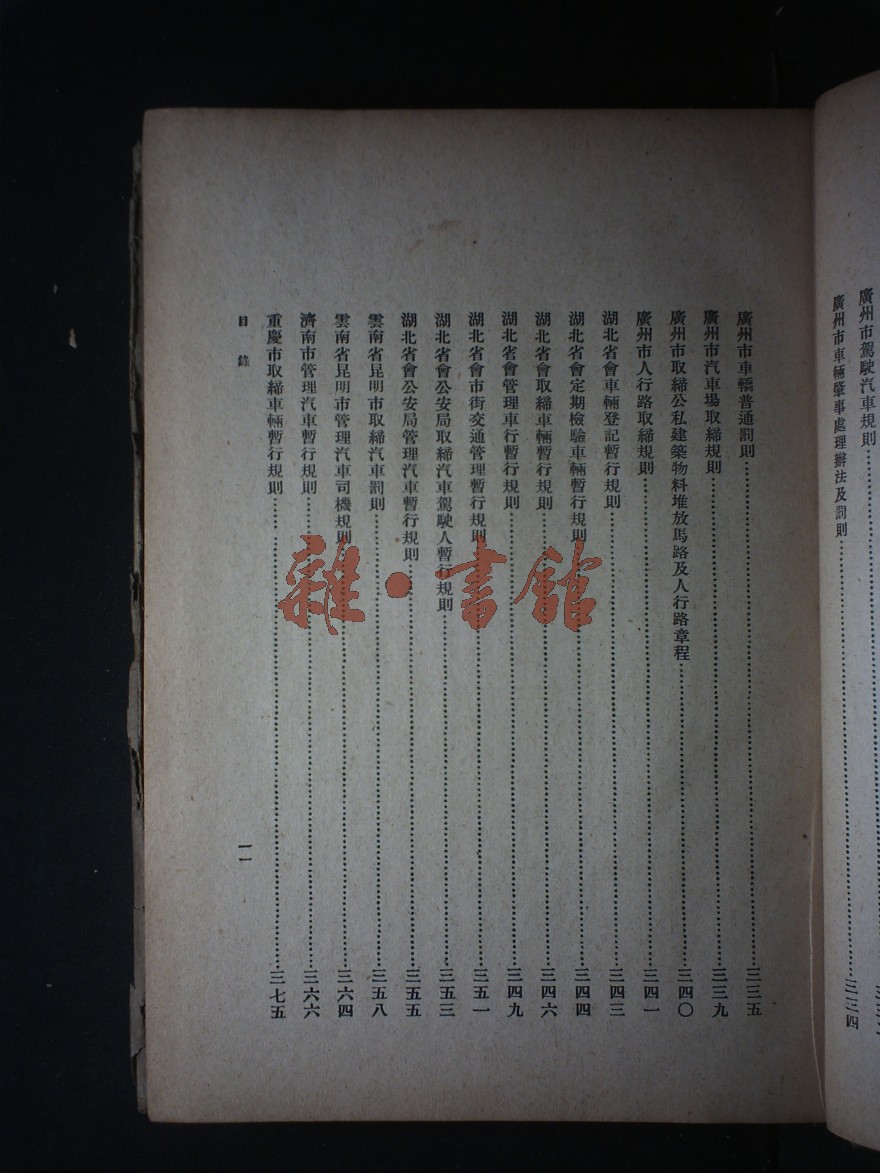 廣州市駕駛汽車規則
廣州市車輛肇事處理辦法及罰則……三三四
廣州市車轎普通罰則……三三五
廣州市汽車場取締規則……三三九
廣州市取締公私建築物料堆放馬路及人行路章程……三四〇
廣州市人行路取締規則……三四一
湖北省會車輛登記暫行規則……三四三
湖北省會定期檢驗車輛暫行規則……三四四
湖北省會取締車輛暫行規則……三四六
湖北省會管理車行暫行規則……三四九
湖北省會市街交通管理暫行規則……三五一
湖北省會公安局取締汽車駕駛人暫行規則……三五三
湖北省會公安局管理汽車暫行規則……三五五
雲南省昆明市取締汽車罰則……三五八
雲南省昆明市管理汽車司機規則……三六四
濟南市管理汽車暫行規則……三六六
重慶市取締車輛暫行規則……三七五
目錄
一一
雜·書館